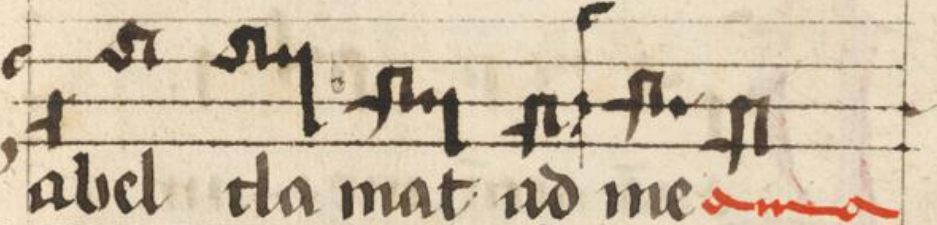 abel clamat ad me ama